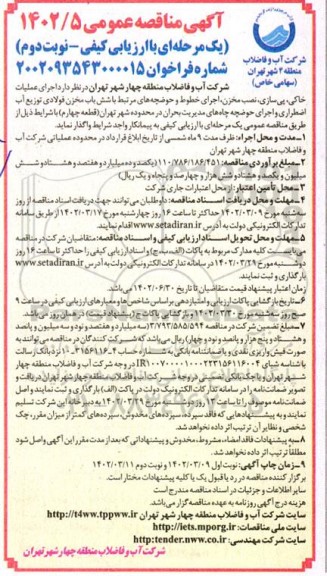 آگهی مناقصه عمومی ۱۴۰۲/۵
(یک مرحله‌ای با ارزیابی کیفی – نوبت دوم)
شماره فراخوان ۲۰۰۲۰۹۳۵۴۳۰۰۰۰۱۵
شرکت آب و فاضلاب
منطقه ۴ شهر تهران
(سهامی خاص)
شرکت آب و فاضلاب منطقه چهار شهر تهران در نظر دارد اجرای عملیات
خاکی، پی‌سازی، نصب مخزن، اجرای خطوط و حوضچه‌های مرتبط با شش باب مخزن فولادی توزیع آب
اضطراری و اجرای حوضچه چاه‌های مدیریت بحران در محدوده شهر تهران (قطعه چهارم) با شرایط ذیل از
طریق مناقصه عمومی یک مرحله‌ای با ارزیابی کیفی به پیمانکار واجد شرایط واگذار نماید.
۱–مدت و محل اجرا: ظرف مدت ۹ ماه شمسی از تاریخ ابلاغ قرارداد در محدوده عملیاتی شرکت آب
و فاضلاب منطقه چهار شهر تهران
۲–مبلغ برآوردی مناقصه: ۱۱۰/۷۸۶/۱۸۶/۴۵۱ (یکصد و ده میلیارد و هفتصد و هشتاد و شش
میلیون و یکصد و هشتاد و شش هزار و چهارصد و پنجاه و یک ریال)
۳–محل تأمین اعتبار: از محل اعتبارات جاری شرکت
۴–مهلت و محل دریافت اسناد مناقصه: داوطلبان می‌توانند جهت دریافت اسناد مناقصه از روز
سه‌شنبه مورخ ۱۴۰۲/۰۳/۰۹ حداکثر تا ساعت ۱۶ روز چهارشنبه مورخ ۱۴۰۲/۰۳/۱۷ از طریق سامانه
تدارکات الکترونیکی دولت به آدرس www.setadiran.ir اقدام نمایند.
۵–مهلت و محل تحویل اسناد ارزیابی کیفی و اسناد مناقصه: متقاضیان شرکت در مناقصه
می‌بایست کلیه مدارک مربوط به پاکات (الف،ب،ج) و ارزیابی کیفی را حداکثر تا ساعت ۱۶ روز
دوشنبه مورخ ۱۴۰۲/۰۳/۲۹ در سامانه تدارکات الکترونیکی دولت به آدرس www.setadiran.ir
بارگذاری و ثبت نمایند.
زمان اعتبار پیشنهاد قیمت متقاضیان تا تاریخ ۱۴۰۲/۰۶/۳۰ می‌باشد.
۶–تاریخ بازگشایی پاکات ارزیابی و امتیازدهی براساس شاخص‌ها و معیارهای ارزیابی کیفی در ساعت ۹
صبح روز سه‌شنبه مورخ ۱۴۰۲/۰۳/۳۰ و بازگشایی پاکات ج (پیشنهاد قیمت) در همان روز می‌باشد.
۷–مبلغ تضمین شرکت در مناقصه ۳/۷۹۳/۵۸۵/۵۹۴ (سه میلیارد و هفتصد و نود و سه میلیون و پانصد
و هشتاد و پنج هزار و پانصد و نود و چهار) ریال می‌باشد که شرکت کنندگان در مناقصه می‌توانند به
صورت فیش واریزی نقدی و یا ضمانتنامه بانکی به شماره حساب
در وجه شرکت آب و فاضلاب منطقه چهار
۸–به پیشنهادات فاقد امضاء، مشروط، مخدوش و پیشنهاداتی که بعد از مدت مقرر این آگهی واصل شود
مطلقا ترتیب اثر داده نخواهد شد.
۹–زمان چاپ آگهی: نوبت اول ۱۴۰۲/۰۳/۰۹ و نوبت دوم ۱۴۰۲/۰۳/۱۱
برگزار کننده مناقصه در رد یا قبول یک یا کلیه پیشنهادات مختار است.
سایر اطلاعات و جزئیات در اسناد مناقصه مندرج است
هزینه درج آگهی روزنامه به عهده مناقصه‌گزار می‌باشد.
سایت شرکت آب و فاضلاب منطقه چهار شهر تهران http://t4ww.tppww.ir
سایت ملی مناقصات: http://iets.mporg.ir
سایت شرکت مهندسی: http:tender.nww.co.ir
شرکت آب و فاضلاب منطقه چهار شهر تهران